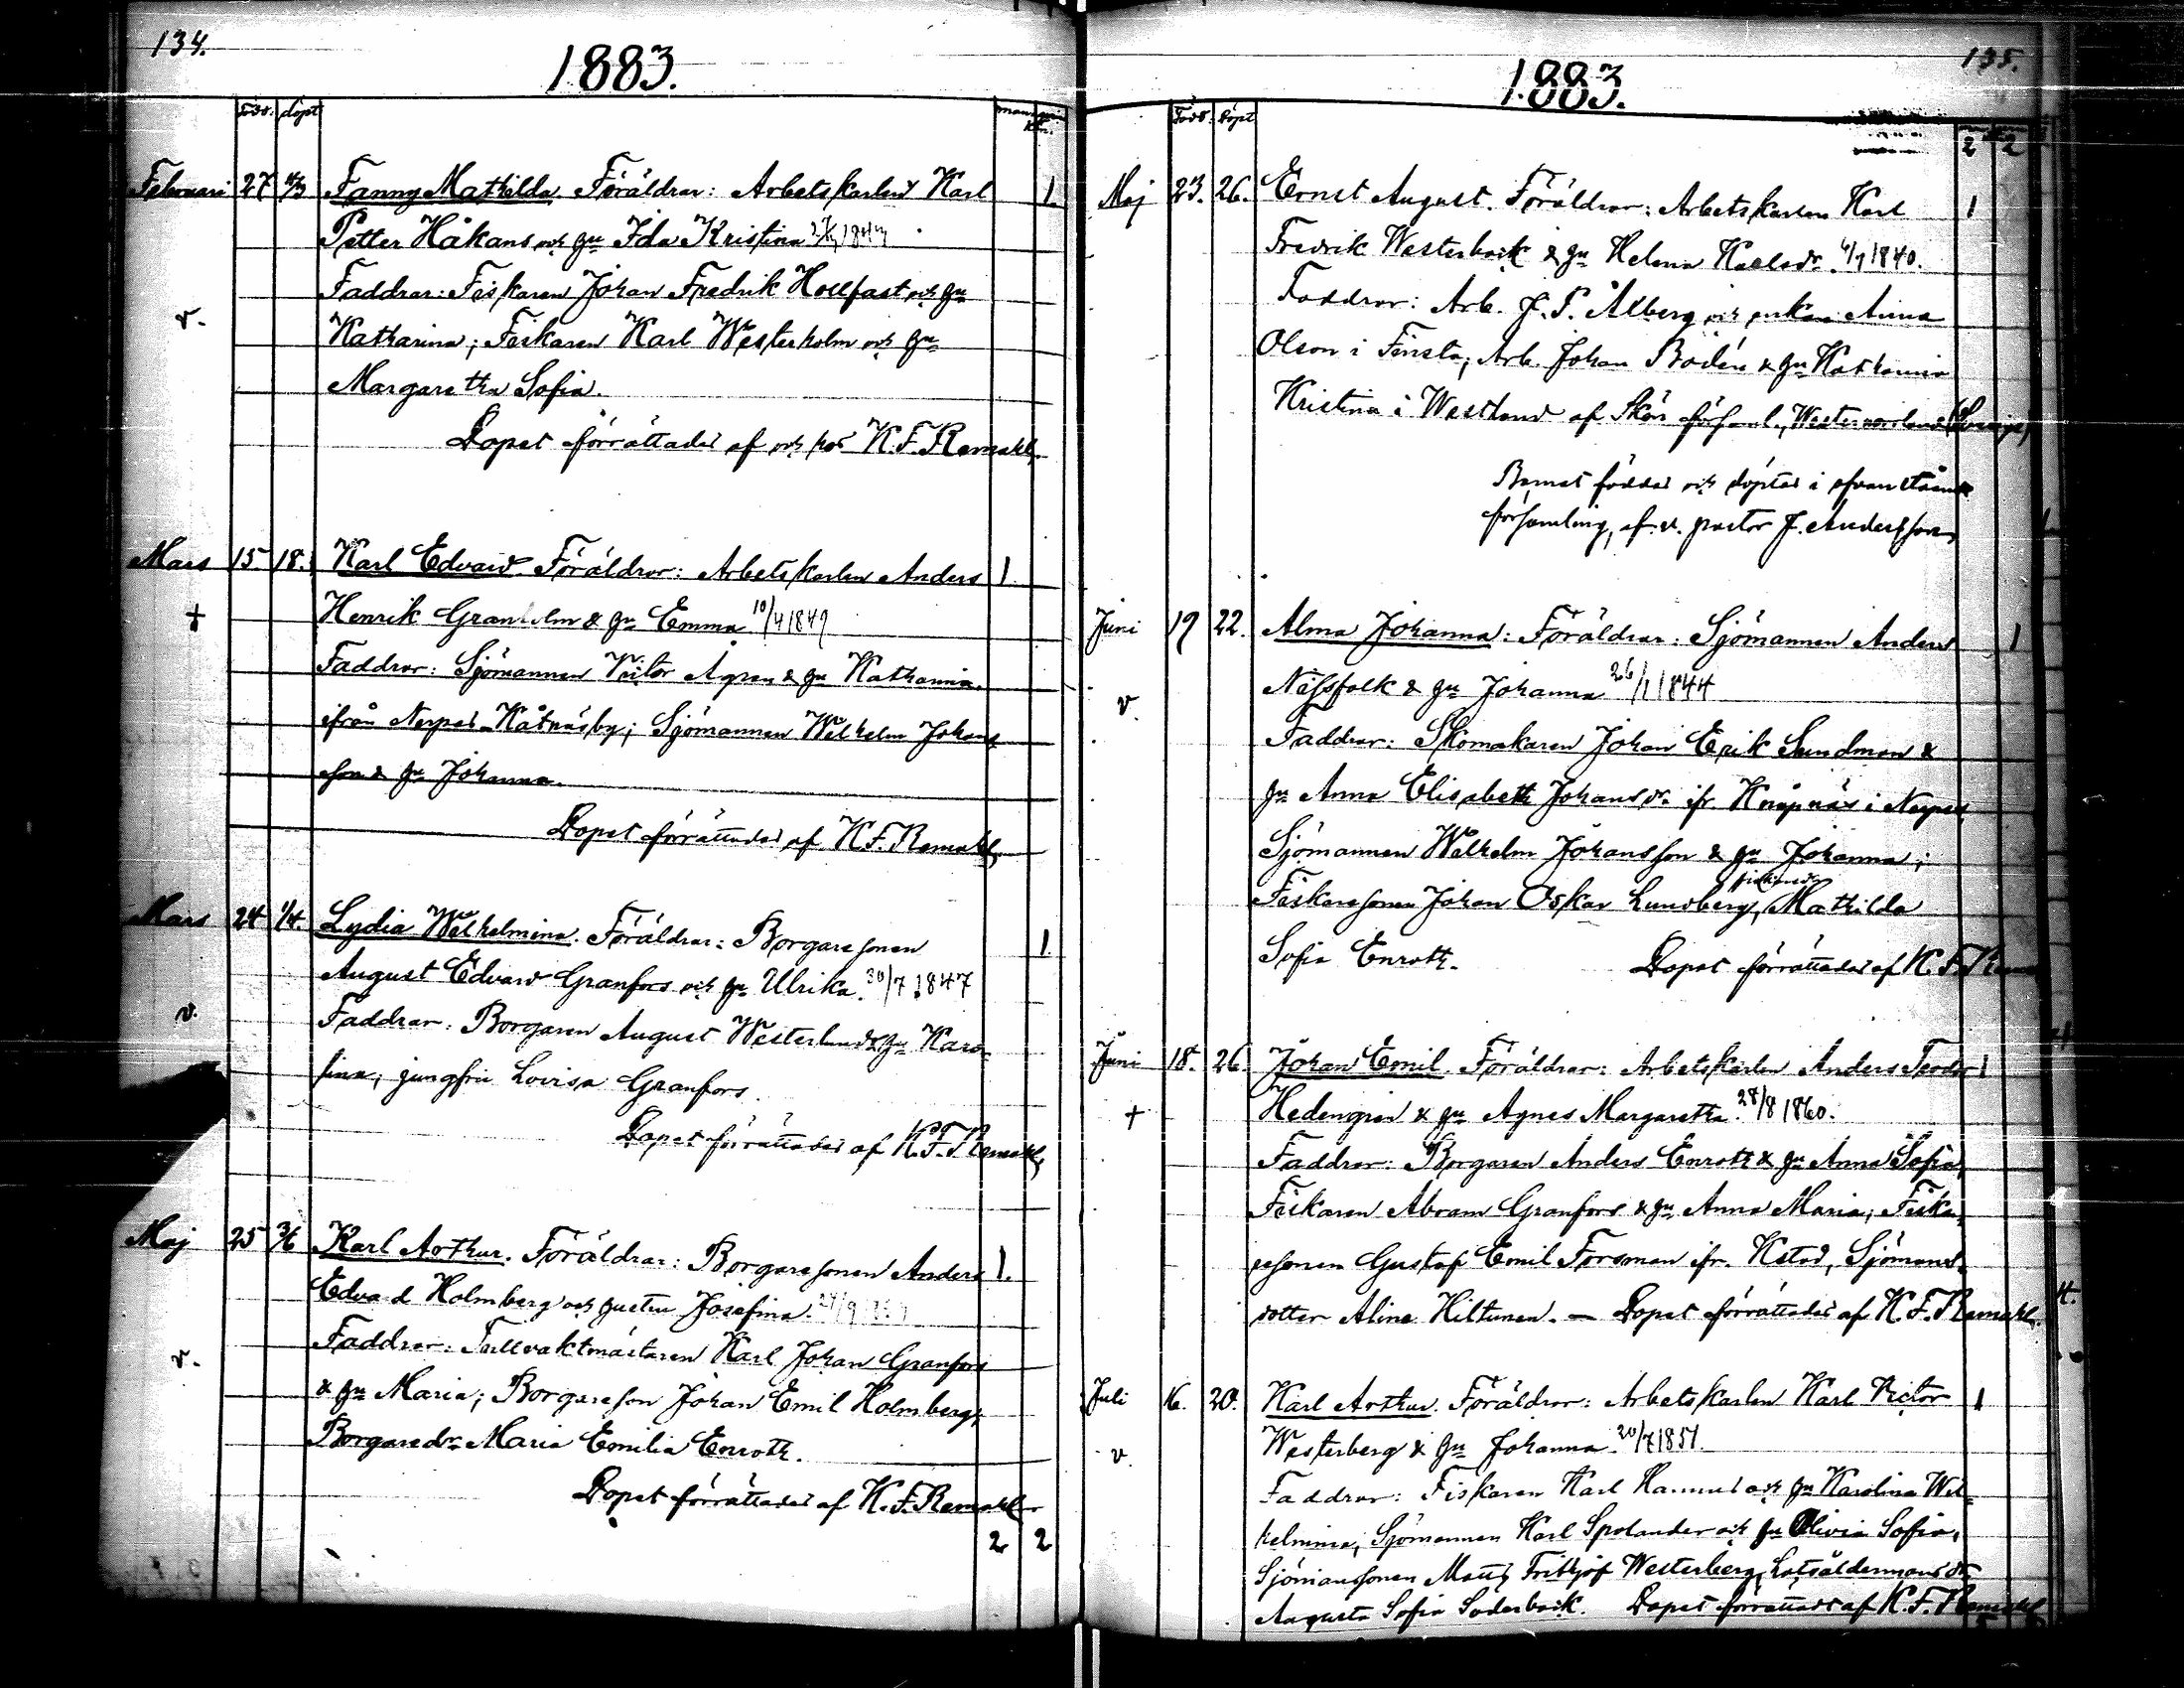 134.
1883.
Född. döpt
mank. qvinnk.
Februari 27 Fanny Mathilda. Föräldrar: Arbetskarlen Karl 1.
Petter Håkans och hu Ida Kristina
Faddrar: Fiskaren Johan Fredrik Hollfast och hu
v. Katharina; Fiskaren Karl Westerholm och hu
Margaretha Sofia.
Dopet förrättades af och hos K.F. Remahl,
Mars 15 18. Karl Edvard. Föräldrar: Arbetskarlen Anders 1
+ Henrik Granholm & hu Emma 10/4 1849
Faddrar: Sjömannen Victor Ågren & hu Katharina
ifrån Nerpes Kåtnäsby; Sjömannen Wilhelm Johans
son & hu Johanna.
Dopet förrättades af K.F. Remahl,
Mars 24 1/4. Lydia Wilhelmina. Föräldrar: Borgaresonen 1
August Edvard Granfors och hu Ulrika. 30/7 1847
v. Faddrar: Borgaren August Westerlund & hu Karo-
lina; jungfru Lovisa Granfors.
Dopet förrättades af K.F. Remahl,
Maj 25 3/6 Karl Arthur. Föräldrar: Borgaresonen Anders 1.
Edvard Holmberg och hustru Josefina.
v. Faddrar: Tullvaktmästaren Karl Johan Granfors
& hu Maria; Borgareson Johan Emil Holmberg,
Borgaredr Maria Emilia Enroth.
Dopet förrättades af K.F. Remahl
2 2
135.
1883.
Född. Döpt
2 2
Maj 23. 26. Ernst August. Föräldrar: Arbetskarlen Karl 1
Fredrik Westerback & hu Helena Karlsdr. 1840.
Faddrar: Arb. J.P. Ålberg och enkan Anna
Olson i Finsta; Arb. Johan Bodén & hu Katharina
Kristina i Westland af Skön församl., Westernorrland (Sverige)
Barnet föddes och döptes i ofvanstående
församling, af v. pastor J. Andersson,
Juni 19 22. Alma Johanna: Föräldrar: Sjömannen Anders 1
v. Nissfolk & hu Johanna 26/1 1844
Faddrar: Skomakaren Johan Erik Sundman &
hu Anna Elisabeth Johansdr. ifr. Knåpnäs i Nerpes
Sjömannen Wilhelm Johansson & hu Johanna;
Fiskaresonen Johan Oskar Lundberg, fiskaredr Mathilda
Sofia Enroth. Dopet förrättades af K.F. Rema
Juni 18. 26. Johan Emil. Föräldrar: Arbetskarlen Anders Teodor 1
+ Hedengren & hu Agnes Margaretha. 28/8 1860.
Faddrar: Borgaren Anders Enroth & hu Anna Sofia,
Fiskaren Abram Granfors & hu Anna Maria; Fiska-
resonen Gustaf Emil Forsman ifr. Kstad, Sjömans-
dotter Alina Hiltunen. — Dopet förrättades af K.F. Remahl.
Juli 16. 20. Karl Arthur. Föräldrar: Arbetskarlen Karl Victor 1
v. Westerberg & hu Johanna. 20/7 1851.
Faddrar: Fiskaren Karl Hannus och hu Karolina Wil-
helmina; Sjömannen Karl Spolander och hu Olivia Sofia,
Sjömanssonen Matts Frithjof Westerberg, Lotsåldermansdr
Augusta Sofia Söderback. Dopet förrättades af K.F. Remahl